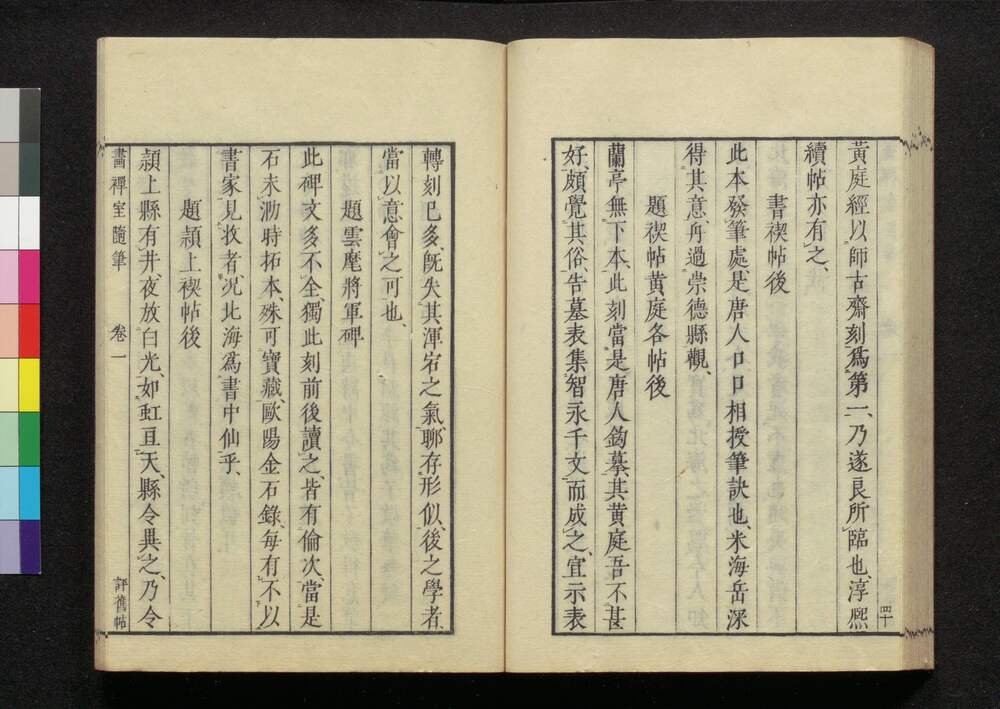 四十
黃庭經以師古齋刻爲第一、乃遂良所臨也、淳熙
續帖亦有之、
書禊帖後
此本發筆處、是唐人口口相授筆訣也、米海岳深
得其意、舟過崇德縣觀、
題禊帖黃庭各帖後
蘭亭無下本、此刻當是唐人鈎摹、其黃庭吾不甚
好、頗覺其俗、告墓表集智永千文而成之、宜示表
轉刻已多、旣失其渾宕之氣、聊存形似、後之學者
當以意會之可也、
題雲麾將軍碑
此碑文多不全、獨此刻前後讀之、皆有倫次、當是
石未泐時拓本、殊可寶藏、歐陽金石錄、每有不以
書家見收者、况北海爲書中仙乎、
題潁上禊帖後
潁上縣有井、夜放白光、如虹亘天、縣令異之、乃令
畫禪室隨筆 卷一 評舊帖